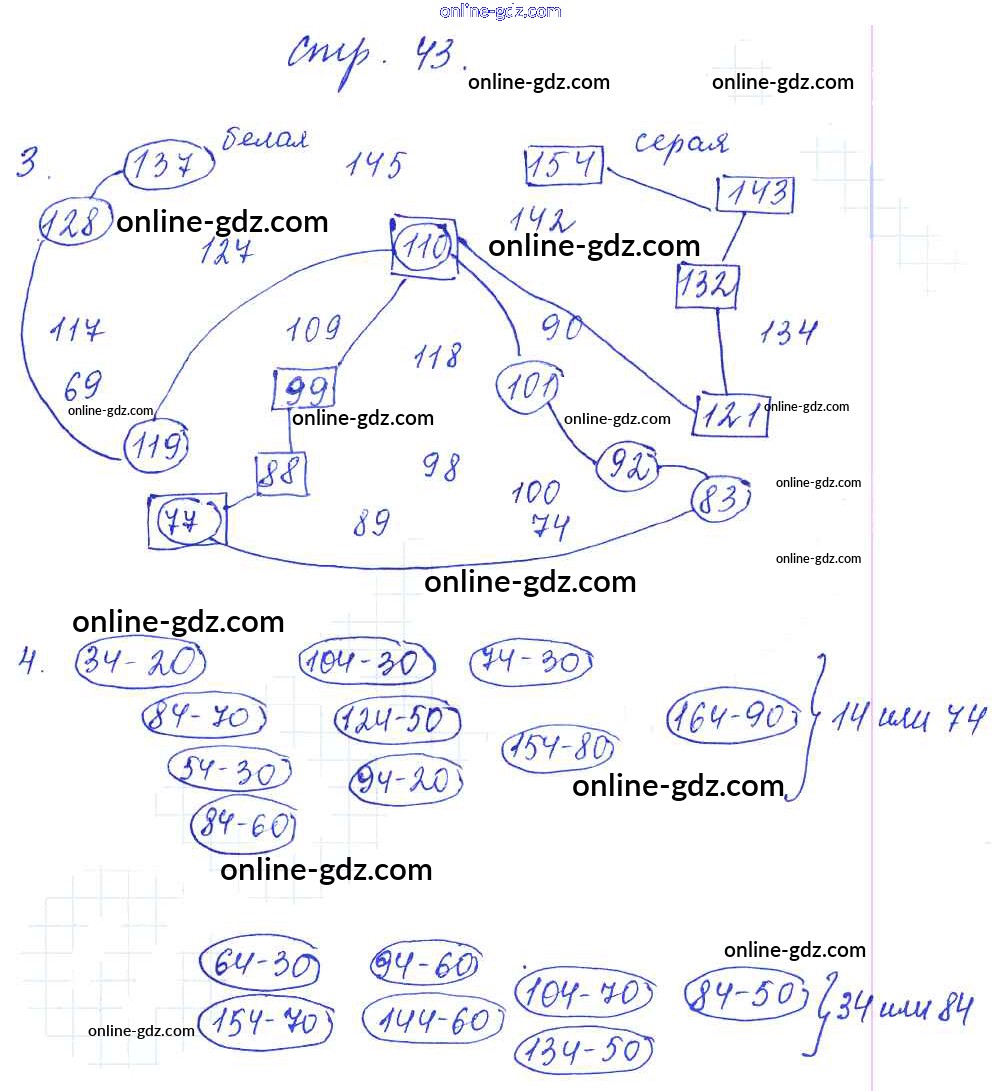 online-gdz.com
стр. 43.
online-gdz.com online-gdz.com
3. 137 белая 145 154 серая 143
128 online-gdz.com 127 110 142 online-gdz.com
132
117 109 118 90 134
69 99 101
online-gdz.com online-gdz.com online-gdz.com 121 online-gdz.com
119 88 98 92 83
online-gdz.com
77 89 100
74
online-gdz.com
online-gdz.com
online-gdz.com
4. 34-20 104-30 74-30
84-70 124-50 154-80 164-90 } 14 или 74
54-30 94-20 online-gdz.com
84-60
online-gdz.com
online-gdz.com
64-30 94-60 104-70 84-50 } 34 или 84
154-70 144-60 134-50
online-gdz.com